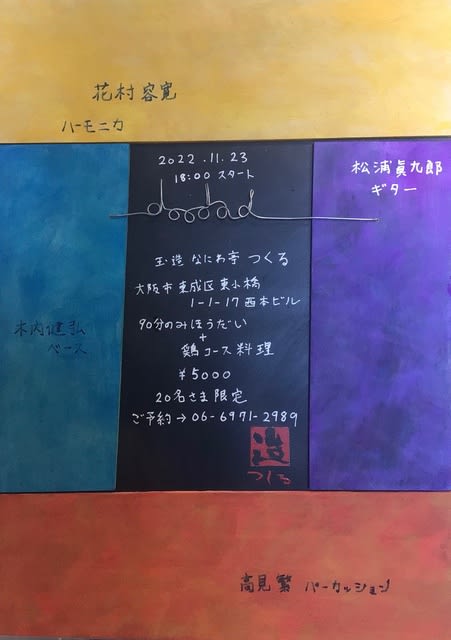 花村容寛
ハーモニカ
2022.11.23
18:00 スタート
松浦眞九郎
ギター
玉造 なにわ亭 つくる
大阪市東成区東小橋
1-1-17 西本ビル
木内健弘
ベース
90分のみほうだい
+
鶏コース料理
¥5000
20名さま限定
ご予約→06-6971-2989
造
つくる
高見繁 パーカッション